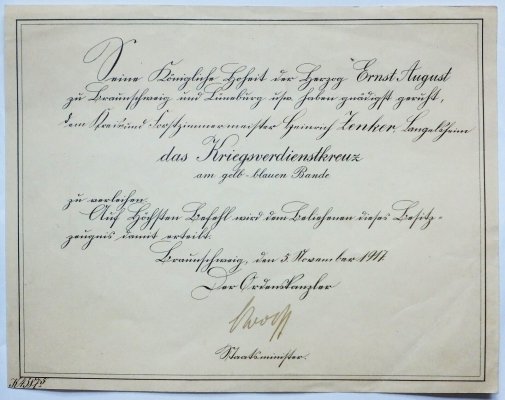 Seine Königliche Hoheit der Herzog Ernst August
zu Braunschweig und Lüneburg usw. haben gnädigst geruht,
dem Kreis und Forstzimmermeister Heinrich Zenker, Langelsheim
das Kriegsverdienstkreuz
am gelb-blauen Bande
zu verleihen.
Auf Höchsten Befehl wird dem Beliehenen dieses Besitz-
zeugnis damit erteilt.
Braunschweig, den 5. November 1917
Der Ordenskanzler
Staatsminister.